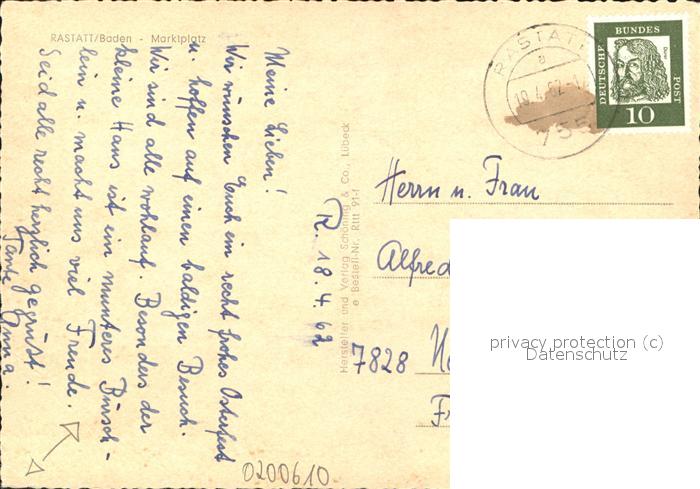 RASTATT/Baden - Marktplatz
Meine Lieben!
Wir wünschen Euch ein recht frohes Osterfest
u. hoffen auf einen baldigen Besuch.
Wir sind alle wohlauf. Besonders der
kleine Hans ist ein munteres Bürsch-
lein u. macht uns viel Freude.
Seid alle recht herzlich gegrüßt!
Tante Anna.
R. 18.4.62
Hersteller und Verlag Schöning & Co., Lübeck
e Bestell-Nr. Rttt 91-f
RASTATT
a
755
DEUTSCHE BUNDES POST
10
Herrn u. Frau
Alfred
7828
privacy protection (c)
Datenschutz
0200610